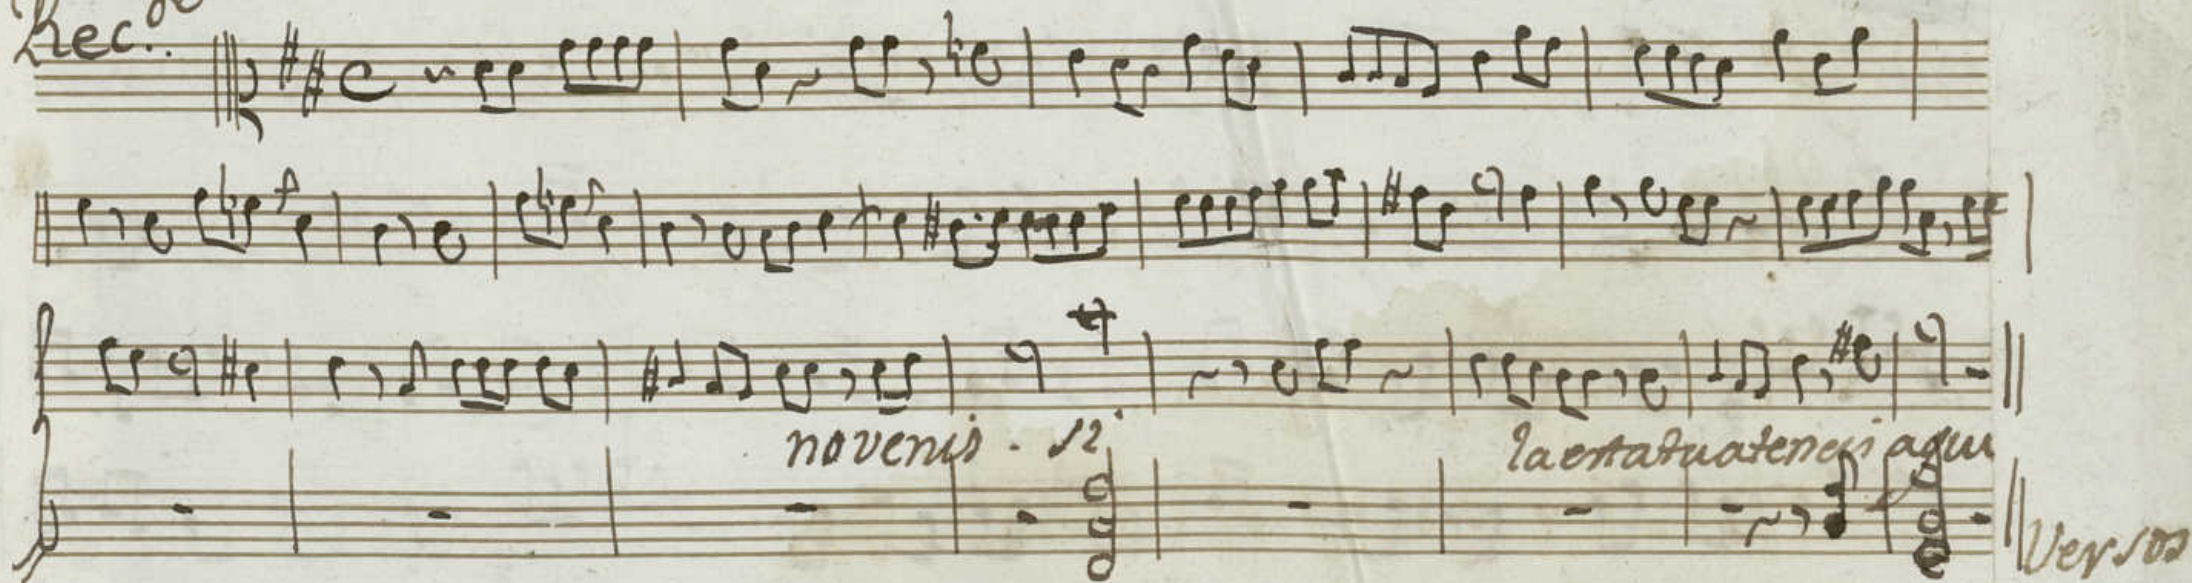 Rec.do
no venis . si
la estatua teneis aqui
Versos